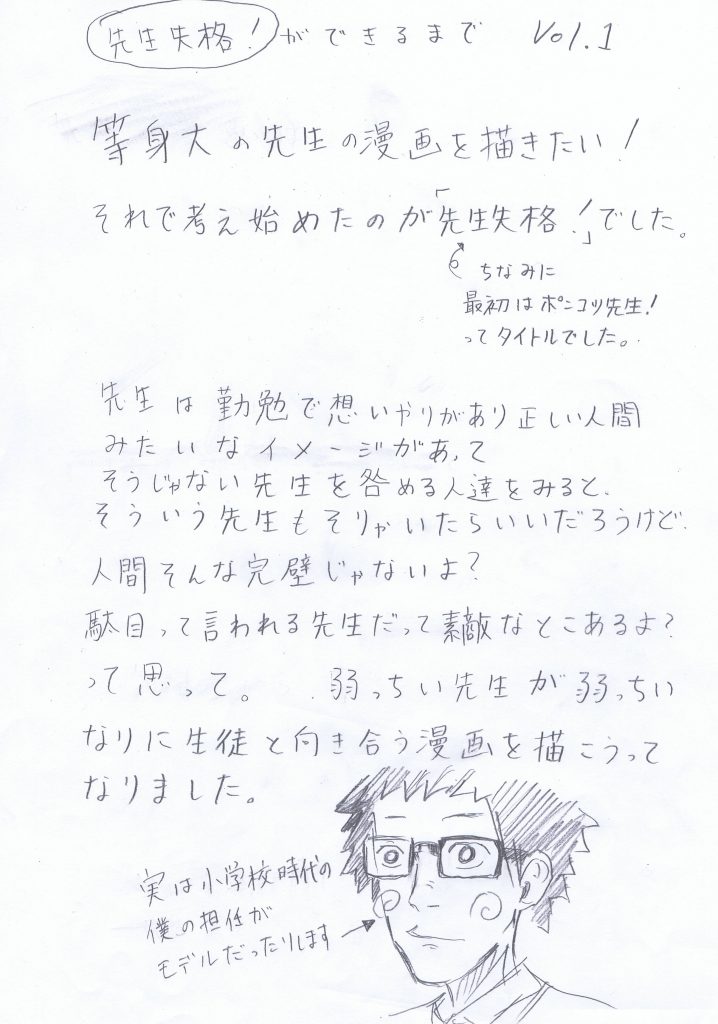 先生失格!ができるまで Vol.1
等身大の先生の漫画を描きたい!
それで考え始めたのが「先生失格!」でした。
ちなみに
最初はポンコツ先生!
ってタイトルでした。
先生は勤勉で想いやりがあり正しい人間
みたいなイメージがあって
そうじゃない先生を咎める人達をみると、
そういう先生もそりゃいたらいいだろうけど、
人間そんな完璧じゃないよ?
駄目って言われる先生だって素敵なとこあるよ?
って思って。 弱っちい先生が弱っちい
なりに生徒と向き合う漫画を描こうって
なりました。
実は小学校時代の
僕の担任が
モデルだったりします